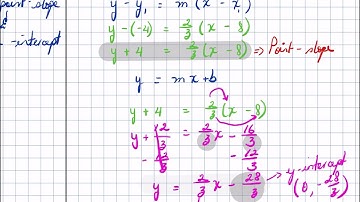 point-slope
&
-intercept
y - y₁ = m (x - x₁)
y - (-4) = 2/3 (x - 8)
y + 4 = 2/3 (x - 8) ⇒ Point-slope
y = mx + b
y + 4 = 2/3 (x - 8)
y + 12/3 = 2/3 x - 16/3
- 12/3 - 12/3
y = 2/3 x - 28/3 → y-intercept
(0, -28/3)